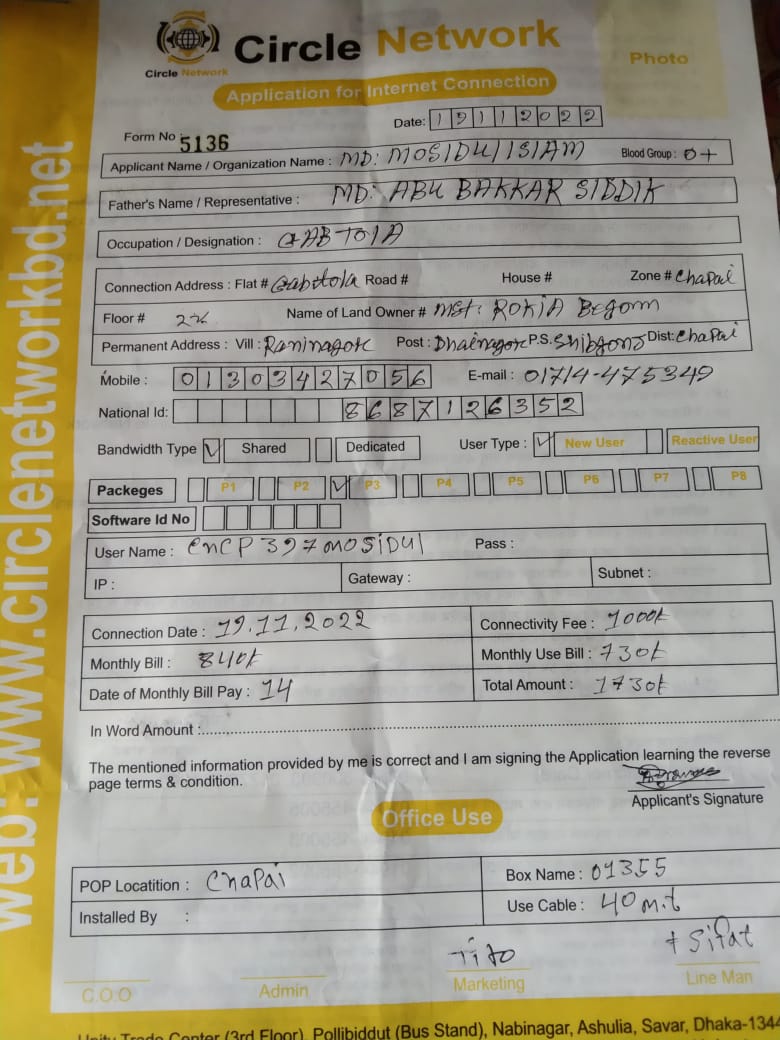 Circle Network
Circle Network
Photo
Application for Internet Connection
Date: 19112022
Form No 5136
Applicant Name / Organization Name : MD: MOSIDUl ISlAM Blood Group : O+
Father's Name / Representative : MD: ABU BAKKAR SIDDIK
Occupation / Designation : GABTOlA
Connection Address : Flat # Gabtola Road # House # Zone # Chapai
Floor # Name of Land Owner # Mst: ROKIA Begom
Permanent Address : Vill : Raninagor Post : Dhainagor P.S. Shibgonj Dist: Chapai
Mobile : 01303427056 E-mail : 01714-475349
National Id: 8687126352
Bandwidth Type Shared Dedicated User Type : New User Reactive User
Packeges P1 P2 P3 P4 P5 P6 P7 P8
Software Id No
User Name : CNCP397MOSiDUl Pass :
IP : Gateway : Subnet :
Connection Date : 19.11.2022 Connectivity Fee : 1000t
Monthly Bill : 840t Monthly Use Bill : 730t
Date of Monthly Bill Pay : 14 Total Amount : 1730t
In Word Amount :
The mentioned information provided by me is correct and I am signing the Application learning the reverse
page terms & condition.
Applicant's Signature
Office Use
POP Locatition : Chapai Box Name : 01355
Installed By : Use Cable : 40 m.t
Tito + Sifat
C.O.O Admin Marketing Line Man
Unity Trade Center (3rd Floor), Pollibiddut (Bus Stand), Nabinagar, Ashulia, Savar, Dhaka-1344
web: www.circlenetworkbd.net